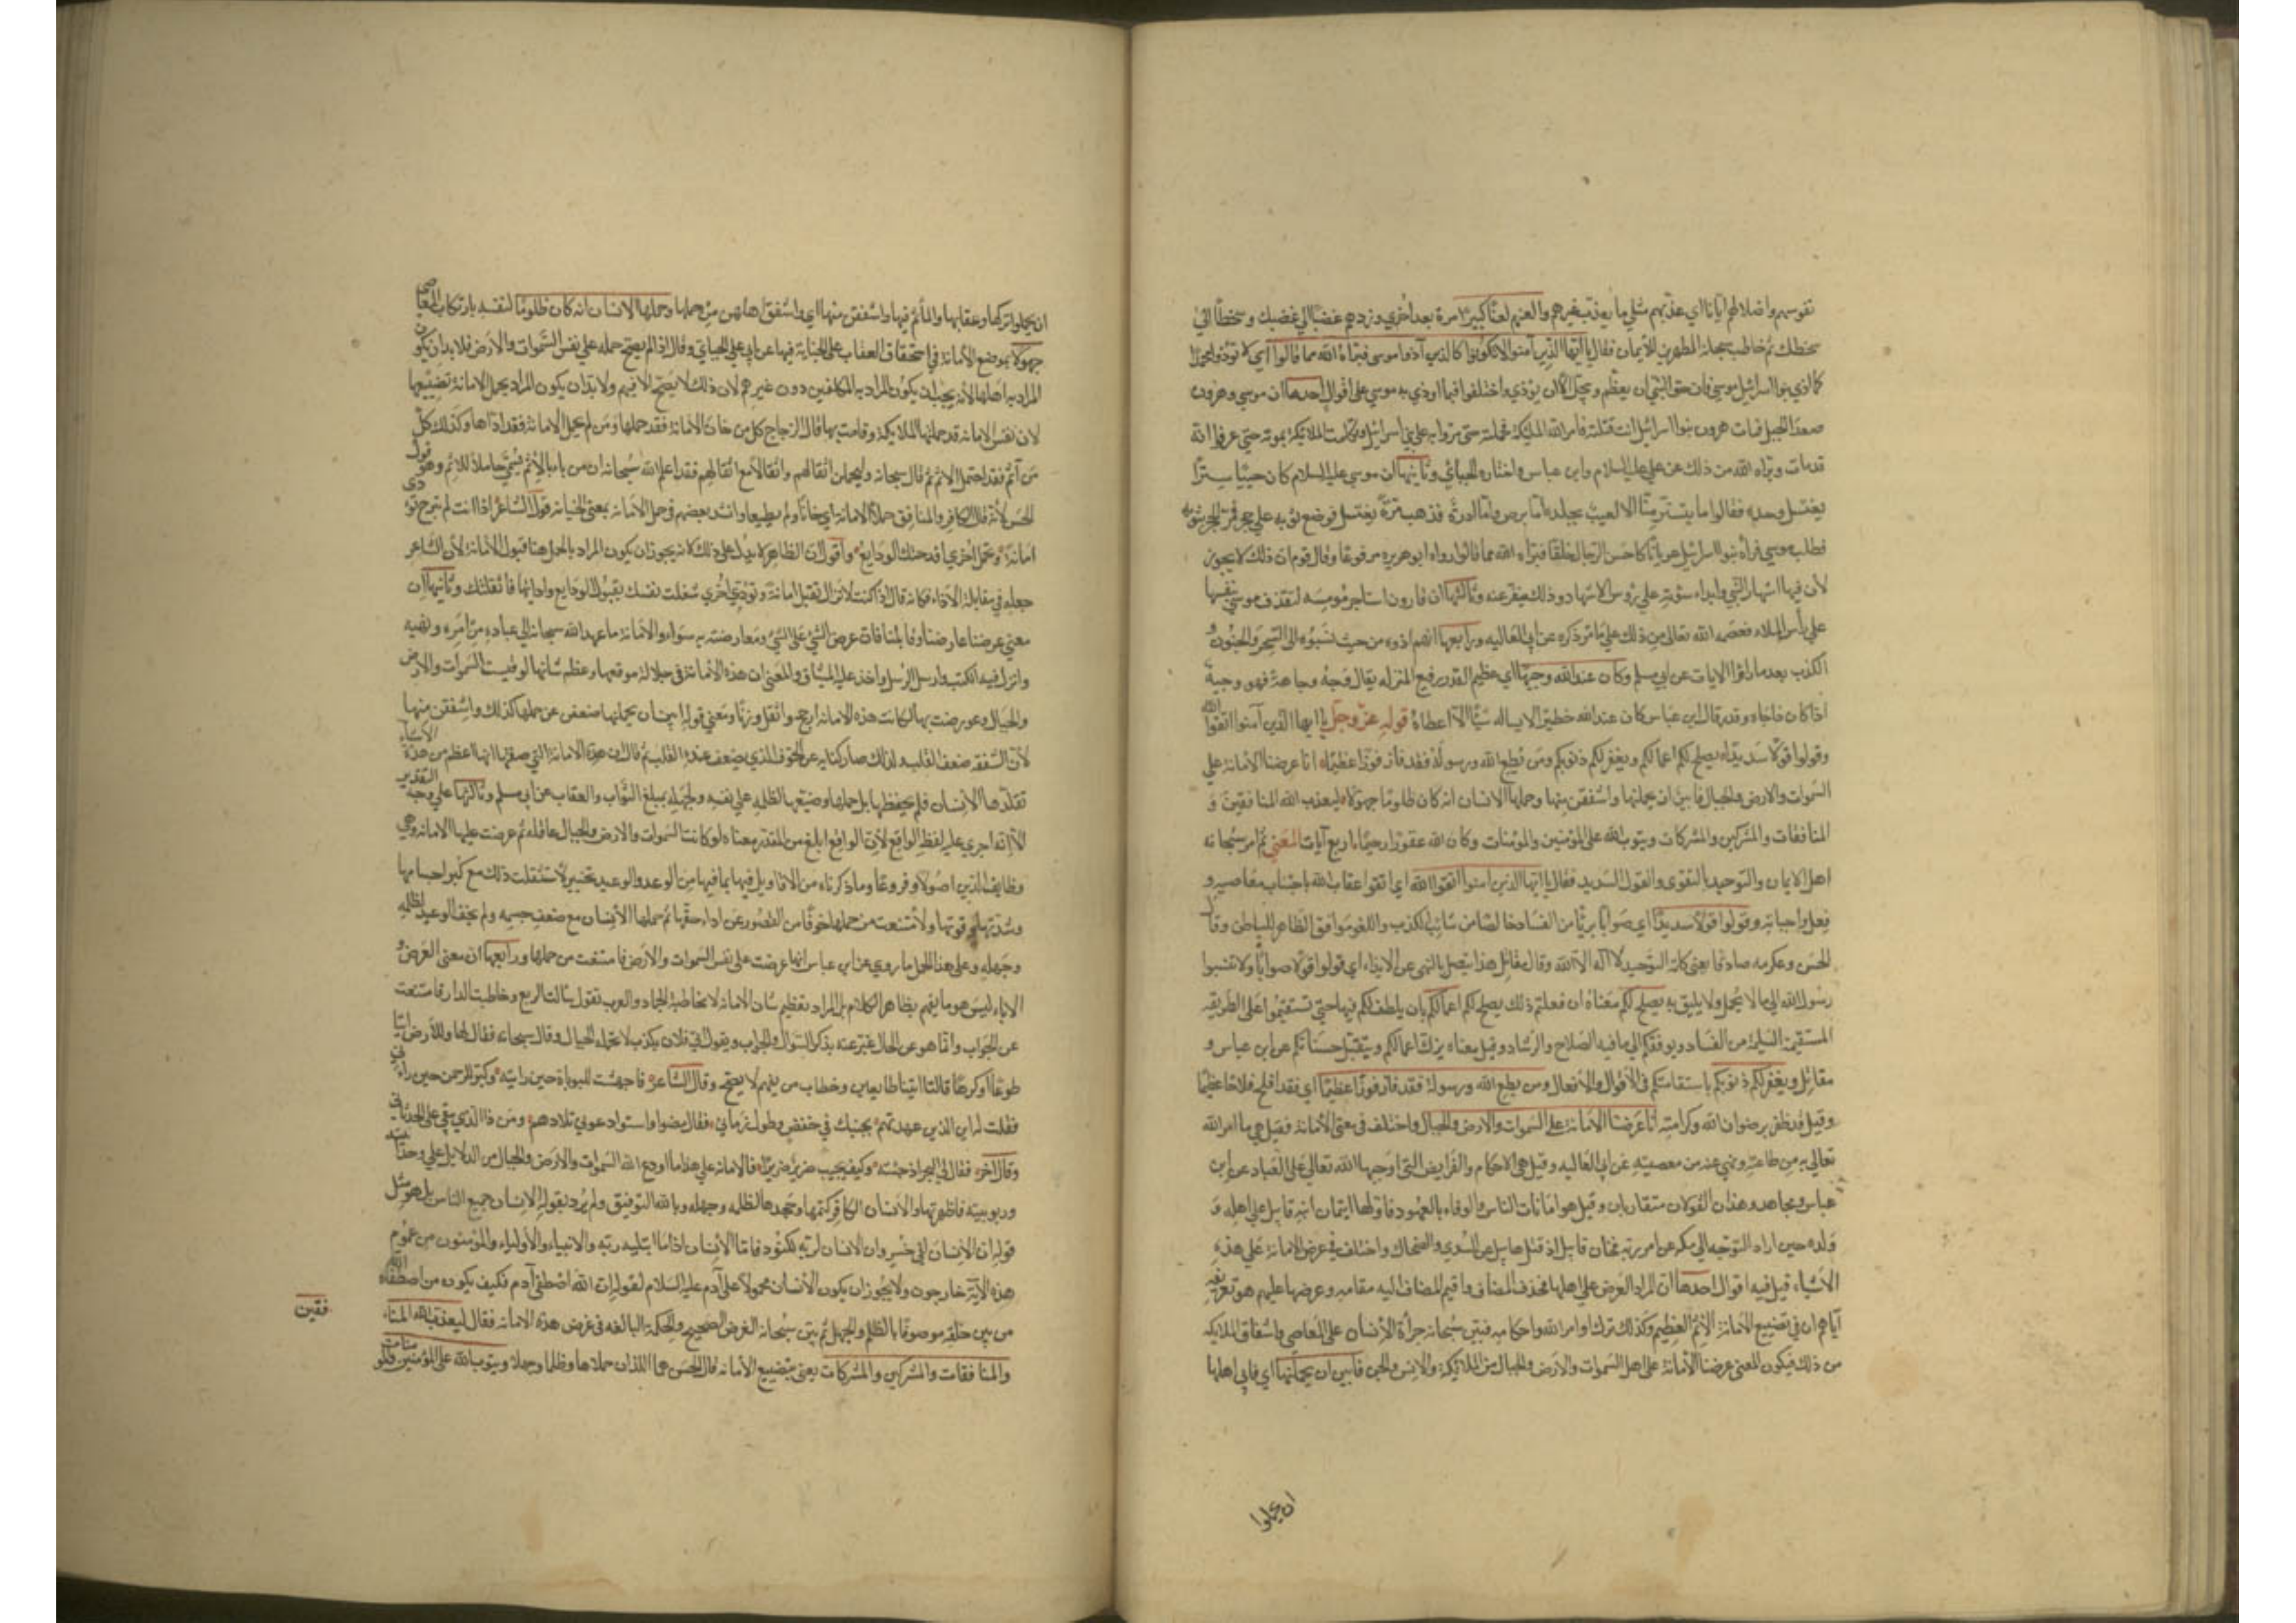 نفوسهم واضلالهم ايانا اي عذبهم مثلي ما يعذب غيرهم والعنهم لعنا كبيرا مرة بعد اخري وزدهم غضبا الي غضبك وسخطا الي
سخطك ثم خاطب سبحانه المظهرين للايمان فقال يا ايها الذين آمنوا لا تكونوا كالذين آذوا موسى فبرأه الله مما قالوا اي لا تؤذوا محمدا
كما اذي بنوا اسرائيل موسي فان حق النبي ان يعظم ويبجل لا ان يوذي واختلفوا فيما اوذي به موسي علي اقوال احدها ان موسي وهرون
صعدا الجبل فمات هرون فقالت بنوا اسرائيل انت قتلته فامر الله الملائكة فحملته حتى مروا به علي بني اسرائيل وتكلمت الملائكة بموته حتي عرفوا انه
قد مات وبراه الله من ذلك عن علي عليه السلام وابن عباس واختاره الجبائي وثانيها ان موسي عليه السلام كان حييا ستيرا
يغتسل وحده فقالوا ما يتستر منا الا لعيب بجلده اما برص واما ادرة فذهب مرة يغتسل فوضع ثوبه علي حجر فمر الحجر بثوبه
فطلبه موسي فرآه بنوا اسرائيل عريانا كاحسن الرجال خلقا فبرأه الله مما قالوا رواه ابو هريره مرفوعا وقال قوم ان ذلك لا يجوز
لان فيه اشهار النبي وابداء سوءته علي رؤس الاشهاد وذلك ينفر عنه وثالثها ان قارون استاجر مومسه لتقذف موسي بنفسها
علي رأس الملاء فعصمه الله تعالي من ذلك علي ما مر ذكره عن ابي العاليه ورابعها انهم اذوه من حيث نسبوه الي السحر والجنون و
الكذب بعد ما رأوا الايات عن ابي مسلم وكان عند الله وجيها اي عظيم القدر رفيع المنزله يقال وجه وجاهة فهو وجيه
اذا كان ذا جاه وقدر قال ابن عباس كان عند الله خطيرا لا يساله شيئا الا اعطاه قوله عز وجل يا ايها الذين آمنوا اتقوا الله
وقولوا قولا سديدا يصلح لكم اعمالكم ويغفر لكم ذنوبكم ومن يطع الله ورسوله فقد فاز فوزا عظيما انا عرضنا الامانة علي
السموات والارض والجبال فابين ان يحملنها واشفقن منها وحملها الانسان انه كان ظلوما جهولا ليعذب الله المنافقين و
المنافقات والمشركين والمشركات ويتوب الله علي المؤمنين والمؤمنات وكان الله غفورا رحيما اربع آيات المعني ثم امر سبحانه
اهل الايمان والتوحيد بالتقوي والقول السديد فقال يا ايها الذين آمنوا اتقوا الله اي اتقوا عقاب الله باجتناب معاصيه و
فعل واجباته وقولوا قولا سديدا اي صوابا بريا من الفساد خالصا من شائب الكذب واللغو موافق الظاهر للباطن وقال
الحسن وعكرمه صادقا يعني كلمة التوحيد لا اله الا الله وقال مقاتل هذا يتصل بالنهي عن الايذاء اي قولوا قولا صوابا ولا تنسبوا
رسول الله الي ما لا يجمل ولا يليق به يصلح لكم اعمالكم معناه ان فعلتم ذلك يصلح لكم اعمالكم بان يلطف لكم فيها حتي تستقيموا علي الطريقة
المستقيمة السليمة من الفساد ويوفقكم الي ما فيه الصلاح والرشاد وقيل معناه يزك اعمالكم ويتقبل حسناتكم عن ابن عباس و
مقاتل ويغفر لكم ذنوبكم باستقامتكم في الاقوال والافعال ومن يطع الله ورسوله فقد فاز فوزا عظيما اي فقد افلح فلاحا عظيما
وقيل فقد ظفر برضوان الله وكرامته انا عرضنا الامانة علي السموات والارض والجبال واختلف في معني الامانة فقيل هي ما امر الله
تعالي به من طاعته ونهي عنه من معصيته عن ابي العاليه وقيل هي الاحكام والفرايض التي اوجبها الله تعالي علي العباد عن ابن
عباس ومجاهد وهذان القولان متقاربان وقيل هو امانات الناس والوفاء بالعهود فاولها ايتمان ابنه قابيل علي اهله و
ولده حين اراد التوجه الي مكه عن امر ربه فخان قابيل اذ قتل هابيل عن السدي والضحاك واختلف في عرض الامانة علي هذه
الاشياء قيل فيه اقوال احدها ان المراد العرض علي اهلها فحذف المضاف واقيم المضاف اليه مقامه وعرضها عليهم هو تعريفه
اياهم ان في تضييع الامانة الاثم العظيم وكذلك ترك اوامر الله واحكامه فبين سبحانه جرأة الانسان علي المعاصي واشفاق الملائكه
من ذلك فيكون المعني عرضنا الامانة علي اهل السموات والارض والجبال من الملائكة والانس والجن فابين ان يحملنها اي فابي اهلها
ان يحملوا
ان يحملوا تركها وعقابها والمأثم فيها واشفقن منها اي واشفق اهلهن من حملها وحملها الانسان انه كان ظلوما لنفسه بارتكاب المعاصي
جهولا بموضع الامانة في استحقاق العقاب علي الخيانة فيها عن ابي علي الجبائي وقال اذا لم يصح حمله علي نفس السموات والارض فلا بد ان يكون
المراد به اهلها لانه يجب ان يكون المراد به المكلفين دون غيرهم لان ذلك لا يصح الا فيهم ولا بد ان يكون المراد بحمل الامانة تضييعها
لان نفس الامانه قد حملتها الملائكة وقامت بها قال الزجاج كل من خان الامانة فقد حملها ومن لم يحمل الامانة فقد اداها وكذلك كل
من أثم فقد احتمل الاثم ثم قال سبحانه وليحملن اثقالهم واثقالا مع اثقالهم فقد اعلم الله سبحانه ان من باء بالاثم يسمي حاملا للاثم وهو قول
الحسن لانه قال الكافر والمنافق حملا الامانة اي خانا ولم يطيعا وانشد بعضهم في حمل الامانة بمعني الخيانه قول الشاعر اذا انت لم تبرح تؤدي
امانة وتحمل اخري افدحتك الودايع واقول ان الظاهر لا يدل علي ذلك لانه يجوز ان يكون المراد بالحمل هنا قبول الامانة لان الشاعر
جعله في مقابلة الاداء فكانه قال اذا كنت لا تزال تقبل امانة وتؤدي اخري شغلت نفسك بقبول الودايع وادائها فاثقلتك وثانيها ان
معني عرضنا عارضنا وقابلنا فان عرض الشئ علي الشئ ومعارضته به سواء والامانة ما عهد الله سبحانه الي عباده من امره ونهيه
وانزل فيه الكتب وارسل الرسل واخذ عليه الميثاق والمعني ان هذه الامانة في جلالة موقعها وعظم شانها لو قيست السموات والارض
والجبال وعورضت بها لكانت هذه الامانة ارجح واثقل وزنا ومعني قوله ابين ان يحملنها ضعفن عن حملها كذلك واشفقن منها
لان الشفقه ضعف القلب ولذلك صار كنايه عن الخوف الذي يضعف عنده القلب ثم قال ان هذه الامانة التي صفتها انها اعظم من هذه الاشياء
تقلدها الانسان فلم يحفظها بل حملها وضيعها لظلمه علي نفسه ولجهله بمبلغ الثواب والعقاب عن ابي مسلم وثالثها علي وجه التقدير
الا انه اجري عليه لفظ الواقع لان الواقع ابلغ من المقدر معناه لو كانت السموات والارض والجبال عاقله ثم عرضت عليها الامانه وهي
وظايف الدين اصولا وفروعا وما ذكرناه من الاقاويل فيها بما فيها من الوعد والوعيد تخيير لاستثقلت ذلك مع كبر اجسامها
وشدتها وقوتها ولامتنعت من حملها خوفا من القصور عن اداء حقها ثم حملها الانسان مع ضعف جسمه ولم يخف الوعيد لظلمه
وجهله وعلي هذا يحمل ما روي عن ابن عباس انها عرضت علي نفس السموات والارض فامتنعت من حملها ورابعها ان معني العرض و
الاباء ليس هو ما يفهم بظاهر الكلام بل المراد تعظيم شان الامانه لا مخاطبة الجماد والعرب تقول سالت الربع وخاطبت الدار فامتنعت
عن الجواب وانما هو عن الحال عبر عنه بذكر السؤال والجواب ويقول اتي فلان بكذب لا تحمله الجبال وقال سبحانه فقال لها وللارض ائتيا
طوعا او كرها قالتا اتينا طايعين وخطاب من يفهم لا يصح وقال الشاعر فاجهشت للبوباة حين رايته وكبر للرحمن حين رآني
فقلت له اين الذين عهدتهم بجنبك في خفض وطول زمان فقال مضوا واستودعوني بلادهم ومن ذا الذي يبقي علي الحدثان
وقال آخر فقال لي البحر اذ جئته وكيف يجيب ضرير ضريرا فالامانه علي هذا ما اودع الله السموات والارض والجبال من الدلايل علي وحدانيته
وربوبيته فاظهرتها والانسان الكافر كتمها وجحدها لظلمه وجهله وبالله التوفيق ولم يرد بقوله الانسان جميع الناس بل هو مثل
قوله ان الانسان لفي خسر وان الانسان لربه لكنود فاما الانسان اذا ما ابتليه ربه والانبياء والاولياء والمؤمنون من عموم
هذه الآية خارجون ولا يجوز ان يكون الانسان محمولا علي آدم عليه السلام لقوله ان الله اصطفي آدم فكيف يكون من اصطفاه الله
من بين خلقه موصوفا بالظلم والجهل ثم بين سبحانه الغرض الصحيح والحكمة البالغه في عرض هذه الامانه فقال ليعذب الله المنا
فقين
والمنافقات والمشركين والمشركات يعني بتضييع الامانه قال الحسن هما اللذان حملاها وظلما وجهلا ويتوب الله علي المؤمنين والمؤمنات